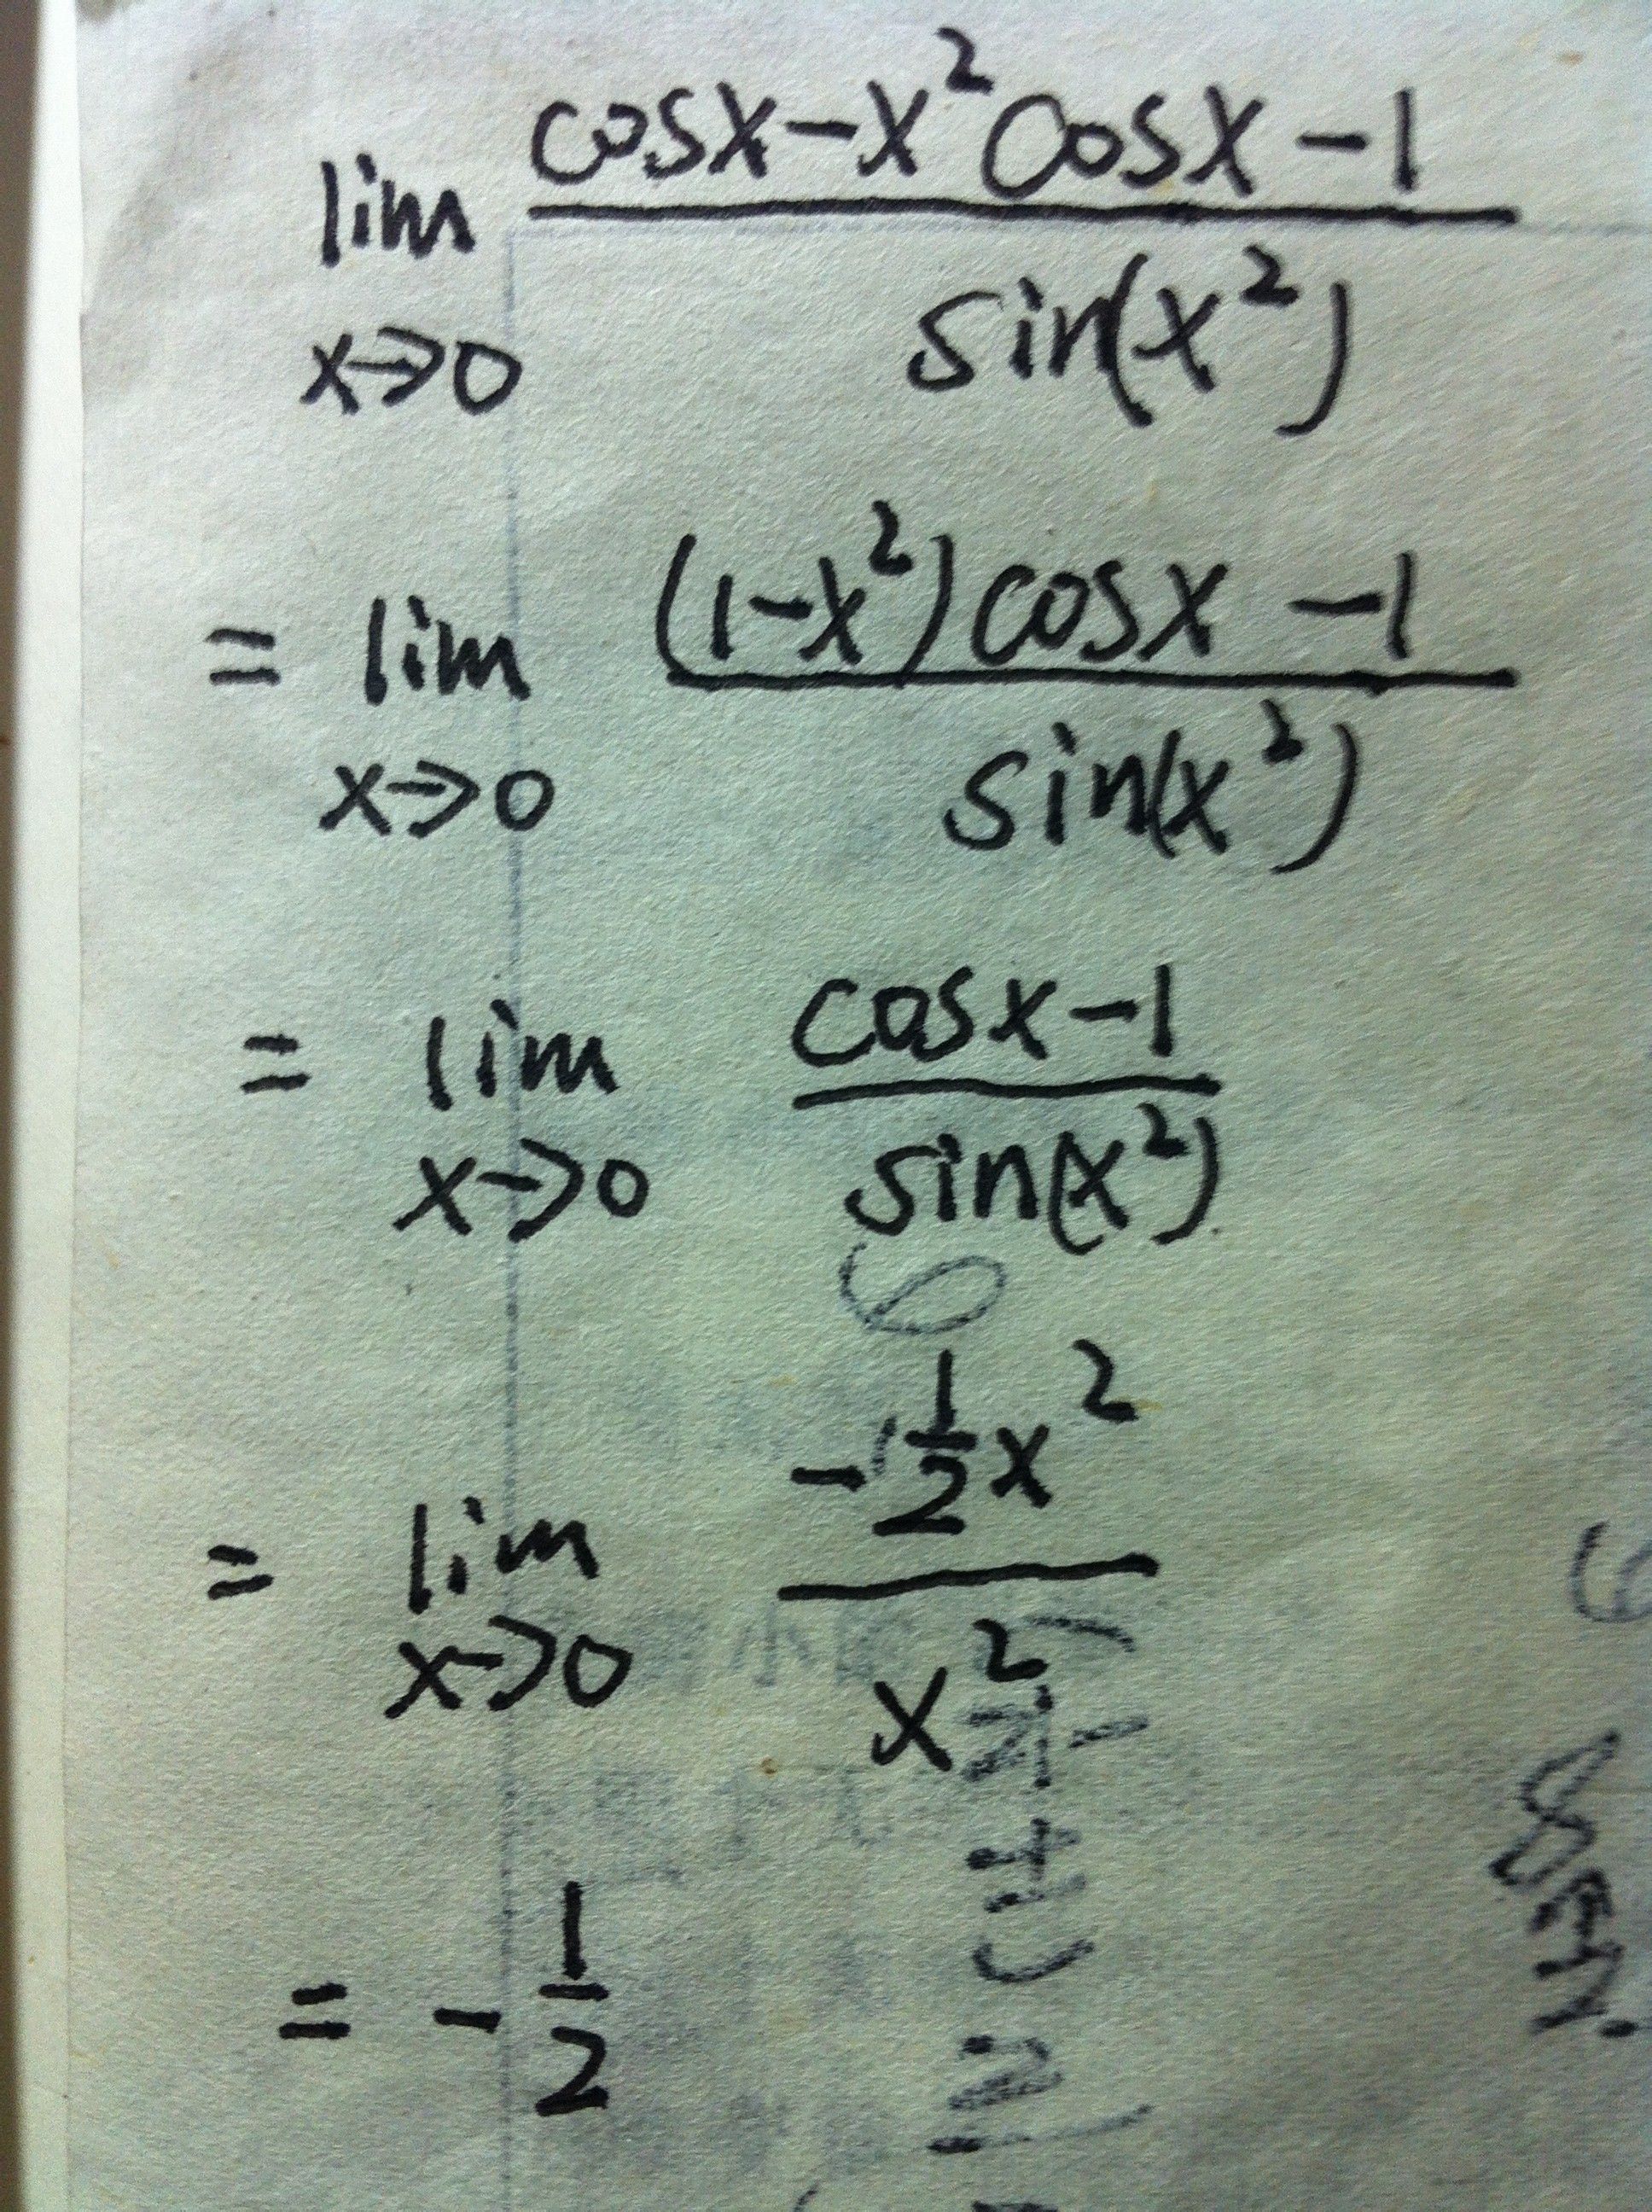 lim x→0 (cosx-x²cosx-1)/(sin(x²))
= lim x→0 ((1-x²)cosx-1)/(sin(x²))
= lim x→0 (cosx-1)/(sin(x²))
= lim x→0 (-½x²)/(x²)
= -½